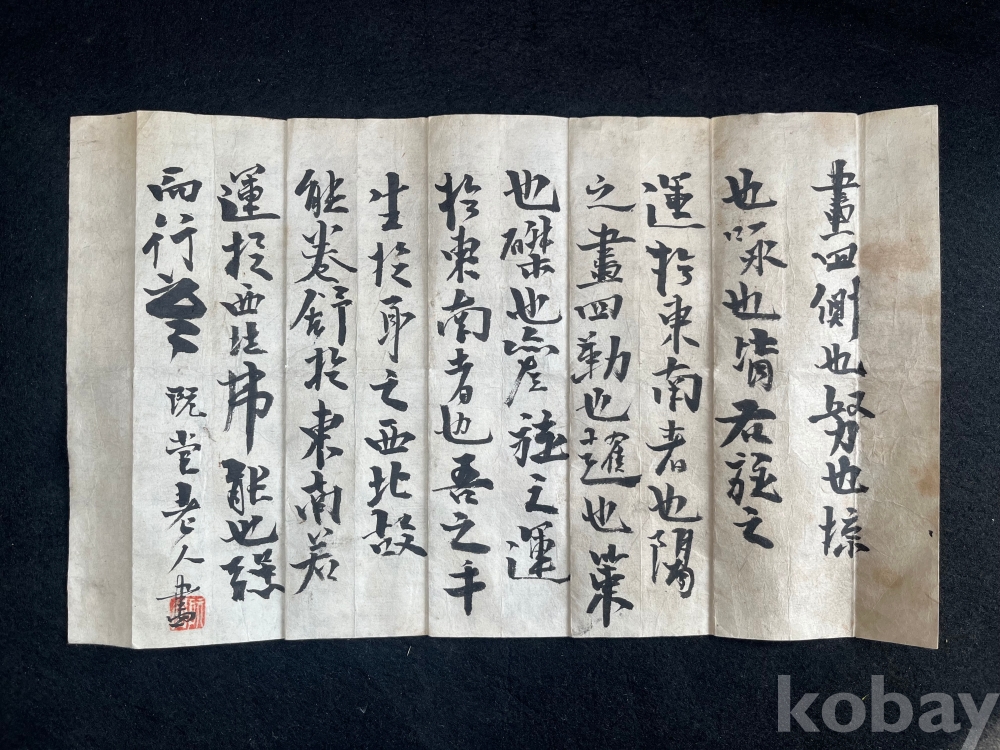 畫四側也努也掠
也啄也皆右旋之
運於東南者也陽
之畫四勒也趯也策
也磔也旋之運
於東南者也吾之手
生於身之西北故
能卷舒於東南若
運於西北弗能也
而行
阮堂老人書
kobay